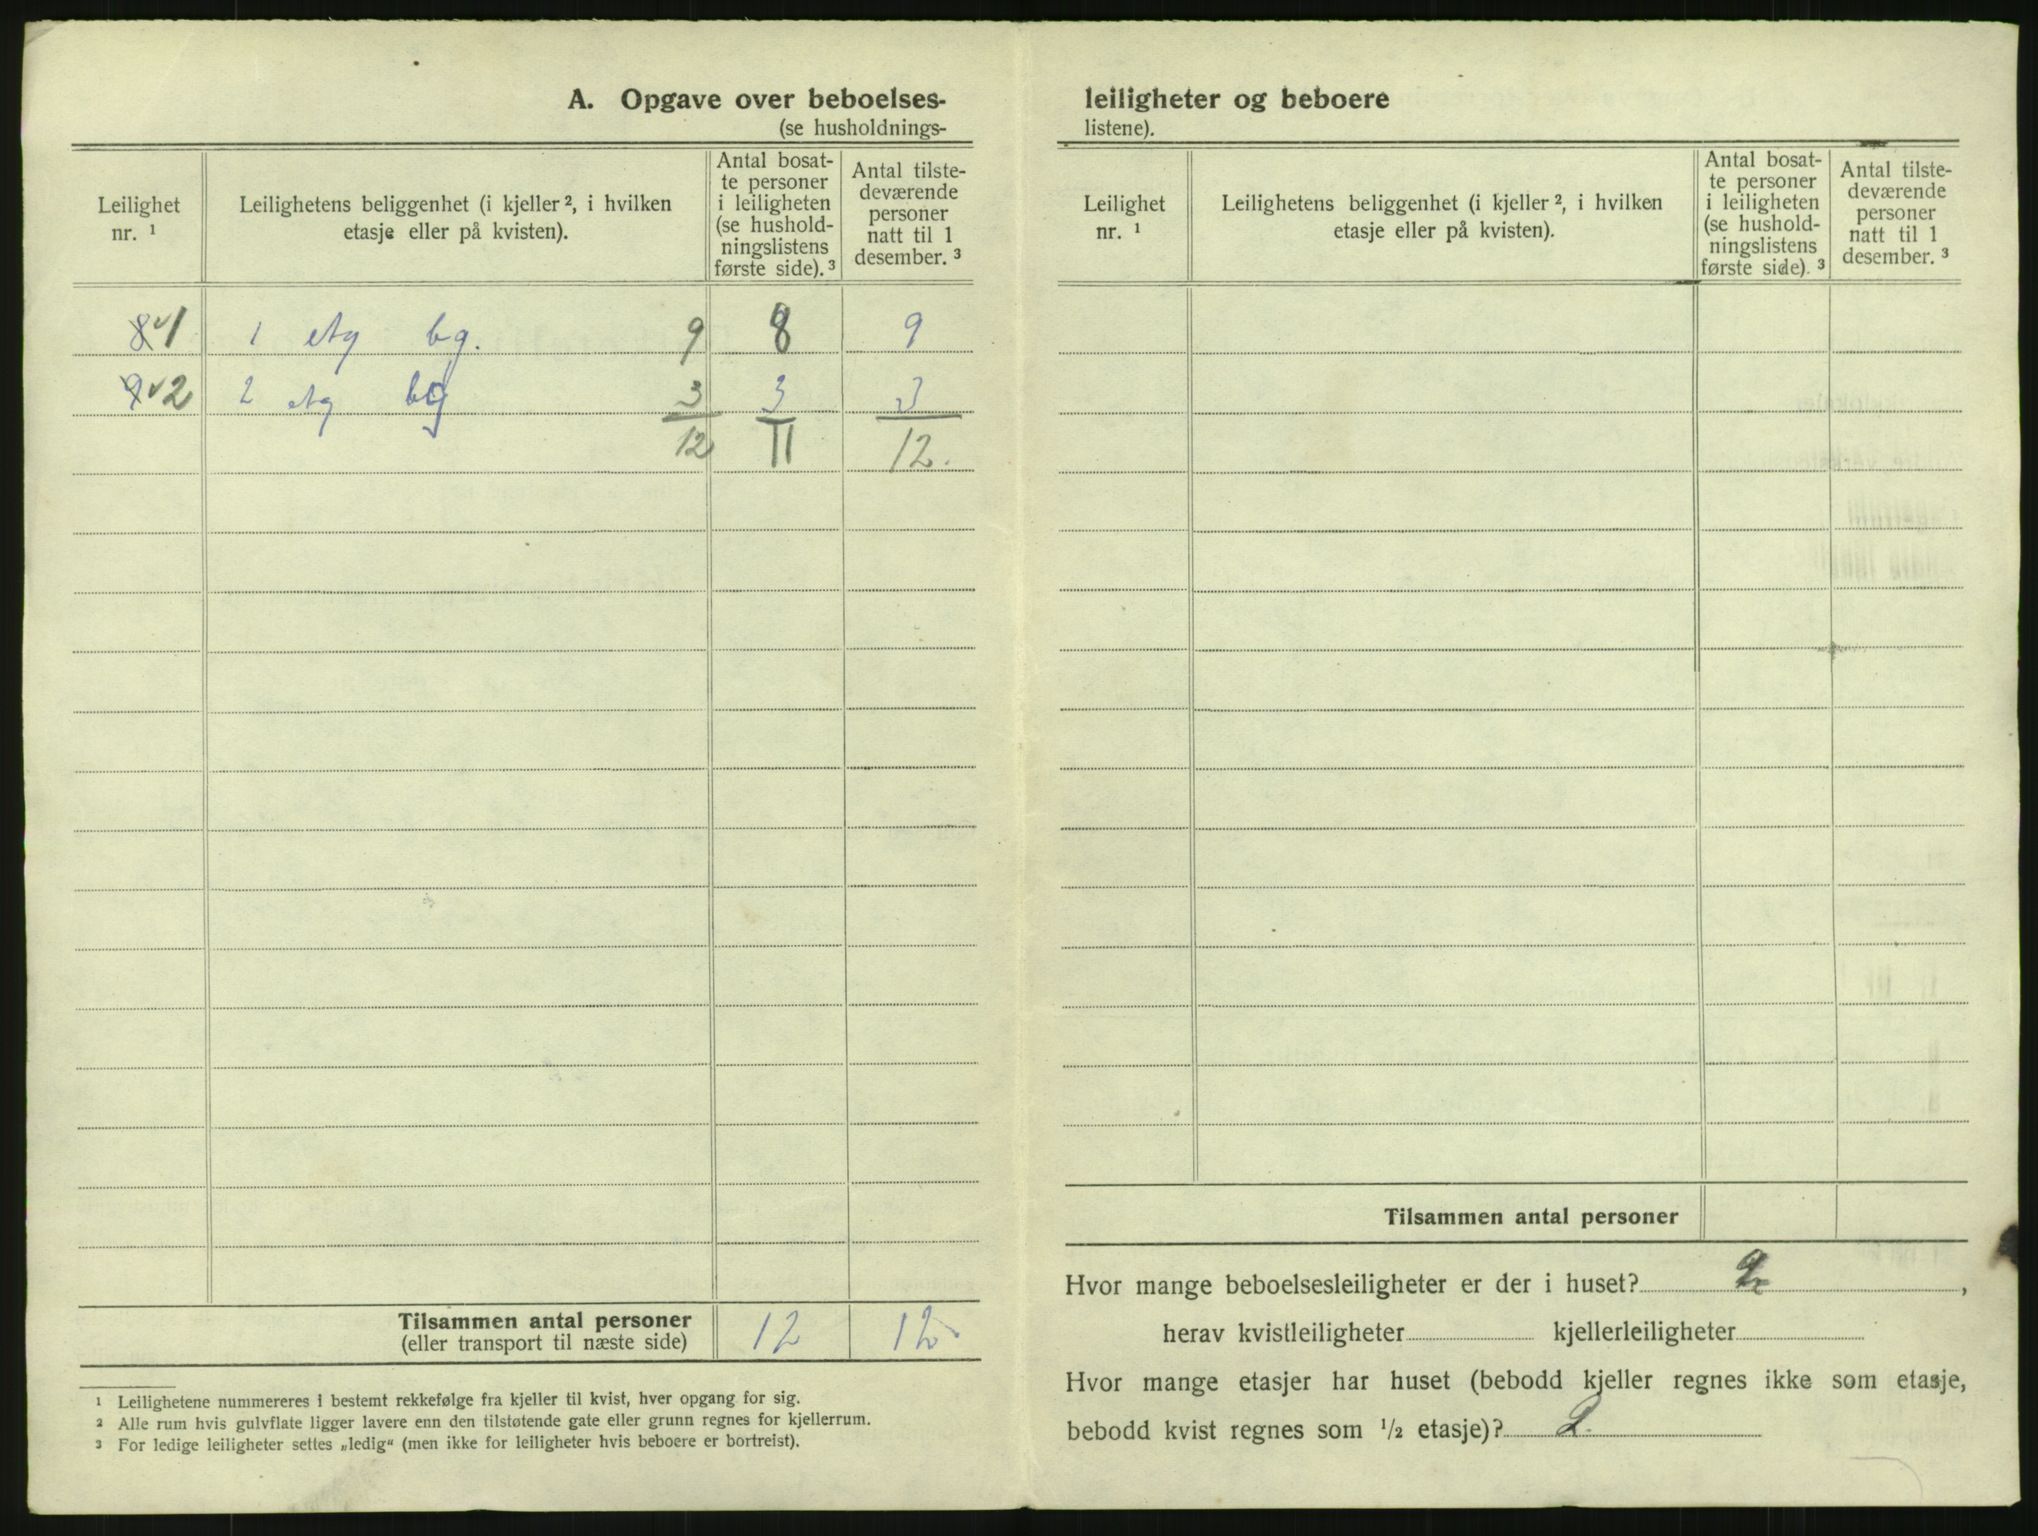 A. Opgave over beboelses-
(se husholdnings-
Leilighet nr. ¹
Leilighetens beliggenhet (i kjeller ², i hvilken etasje eller på kvisten).
Antal bosat-
te personer
i leiligheten
(se hushold-
ningslistens
første side). ³
Antal tilste-
deværende
personer
natt til 1
desember. ³
8 1 1 etg bg. 9 8 9
9 2 2 etg bg 3 3 3
12 11 12.
Tilsammen antal personer 12 12
(eller transport til næste side)
¹ Leilighetene nummereres i bestemt rekkefølge fra kjeller til kvist, hver opgang for sig.
² Alle rum hvis gulvflate ligger lavere enn den tilstøtende gate eller grunn regnes for kjellerrum.
³ For ledige leiligheter settes „ledig“ (men ikke for leiligheter hvis beboere er bortreist).
leiligheter og beboere
listene).
Leilighet nr. ¹
Leilighetens beliggenhet (i kjeller ², i hvilken etasje eller på kvisten).
Antal bosat-
te personer
i leiligheten
(se hushold-
ningslistens
første side). ³
Antal tilste-
deværende
personer
natt til 1
desember. ³
Tilsammen antal personer
Hvor mange beboelsesleiligheter er der i huset? 2,
herav kvistleiligheter kjellerleiligheter
Hvor mange etasjer har huset (bebodd kjeller regnes ikke som etasje,
bebodd kvist regnes som ½ etasje)? 2.